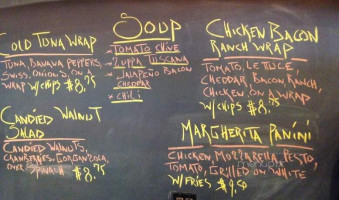 Cold Tuna Wrap
Tuna, Banana Peppers,
Swiss, Onions, on a
Wrap w/chips $8.75
Candied Walnut
Salad
Candied Walnuts,
Cranberries, Gorgonzola,
over Spinach $8.75
Soup
- Tomato Chive
- Zuppa Tuscana
- Jalapeño Bacon
Cheddar
- Chili
Chicken Bacon
Ranch Wrap
Tomato, Lettuce,
Cheddar, Bacon, Ranch,
Chicken on a Wrap
w/chips $8.75
Margherita Panini
Chicken, Mozzarella, Pesto,
Tomato, Grilled on White
w/Fries $9.50